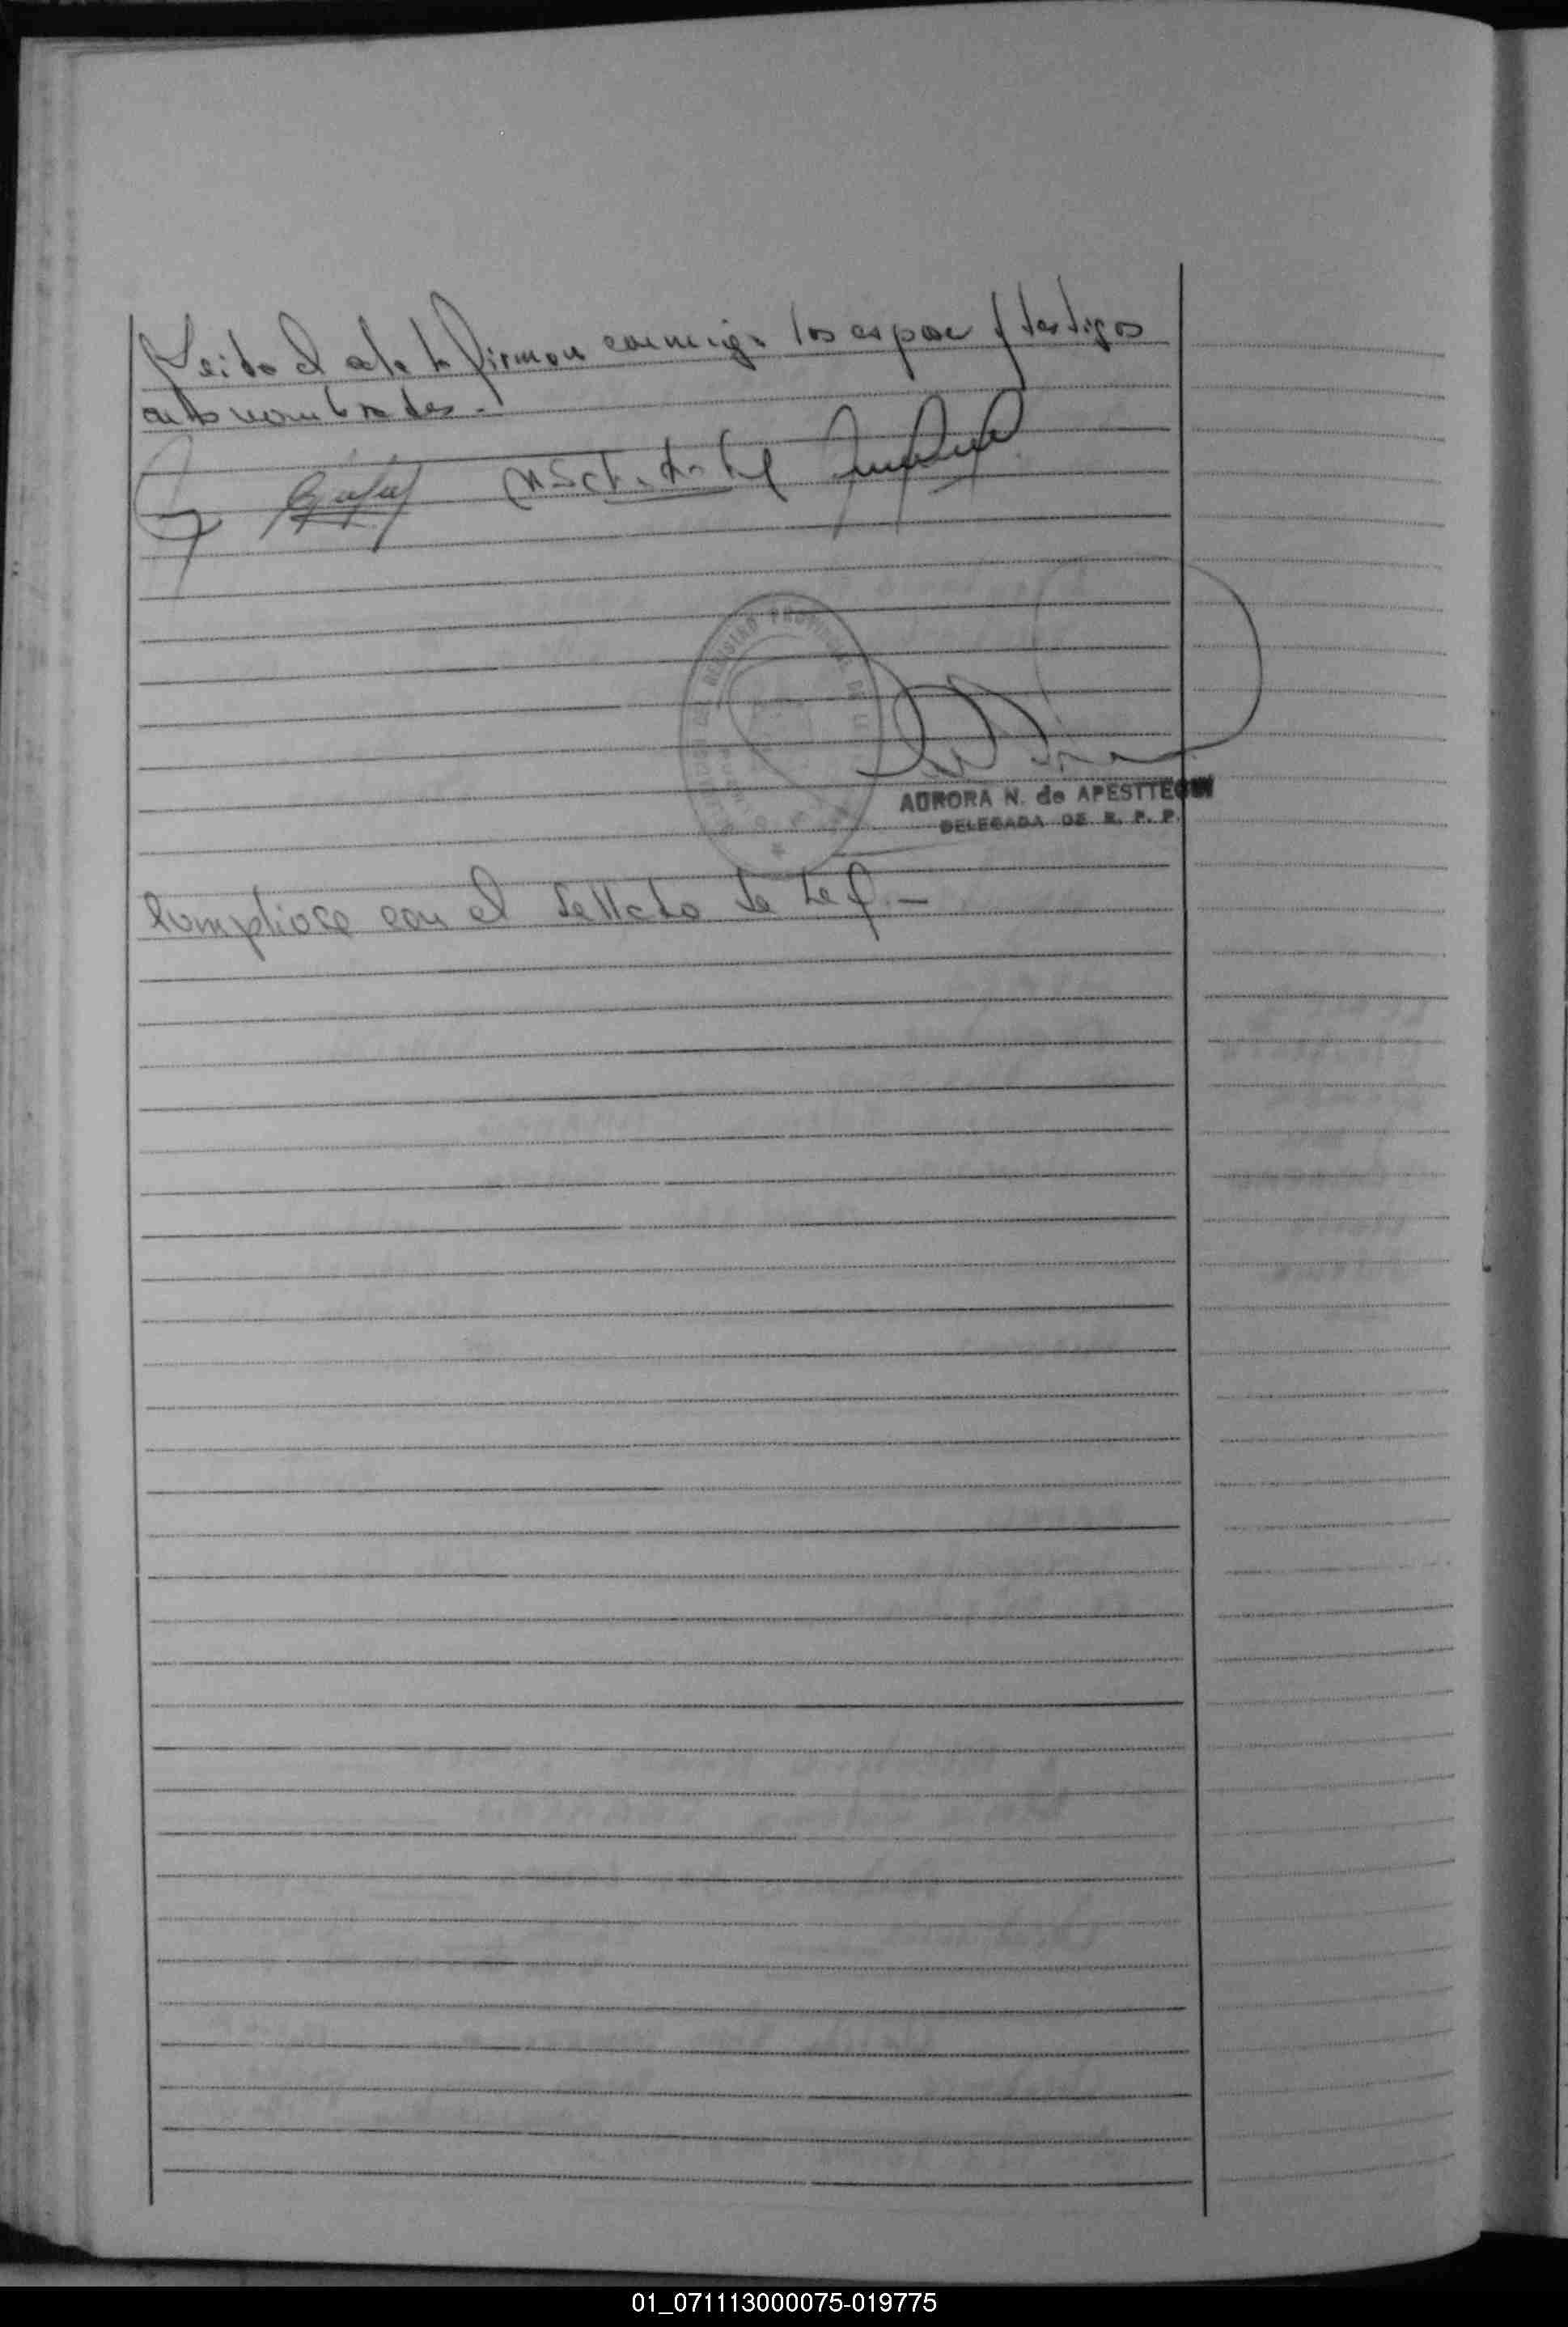 Leida el acta la firman conmigo los espose y testigos
antenombrados.-
REGISTRO PROVINCIAL DE
AURORA N. de APESTTEGUI
DELEGADA DE R. P. P.
Cumpliose con el sellado de Ley.-
01_071113000075-019775